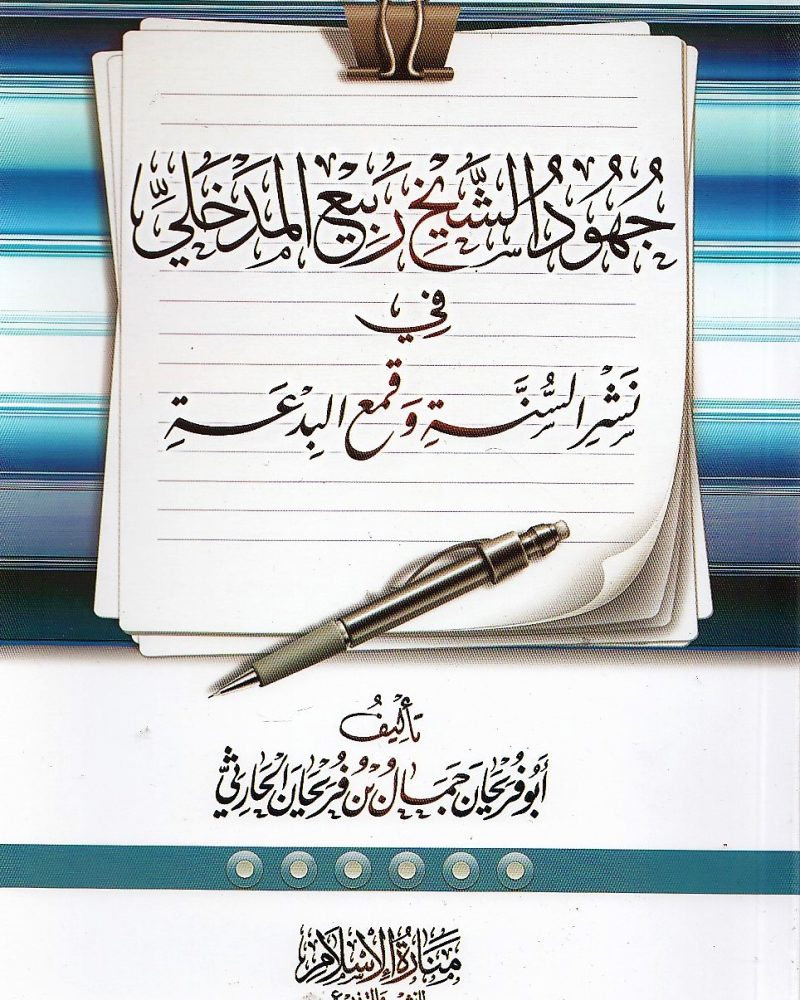 جُهُودُ الشَّيْخِ رَبِيعِ المَدْخَلِيِّ
فِي
نَشْرِ السُّنَّةِ وَقَمعِ البِدْعَةِ
تَأْلِيفُ
أَبُو فُرَيْحَانَ جَمَالُ بْنُ فُرَيْحَانَ الحَارِثِيُّ
مَنَارَةُ الإِسْلَامِ
للنشر والتوزيع